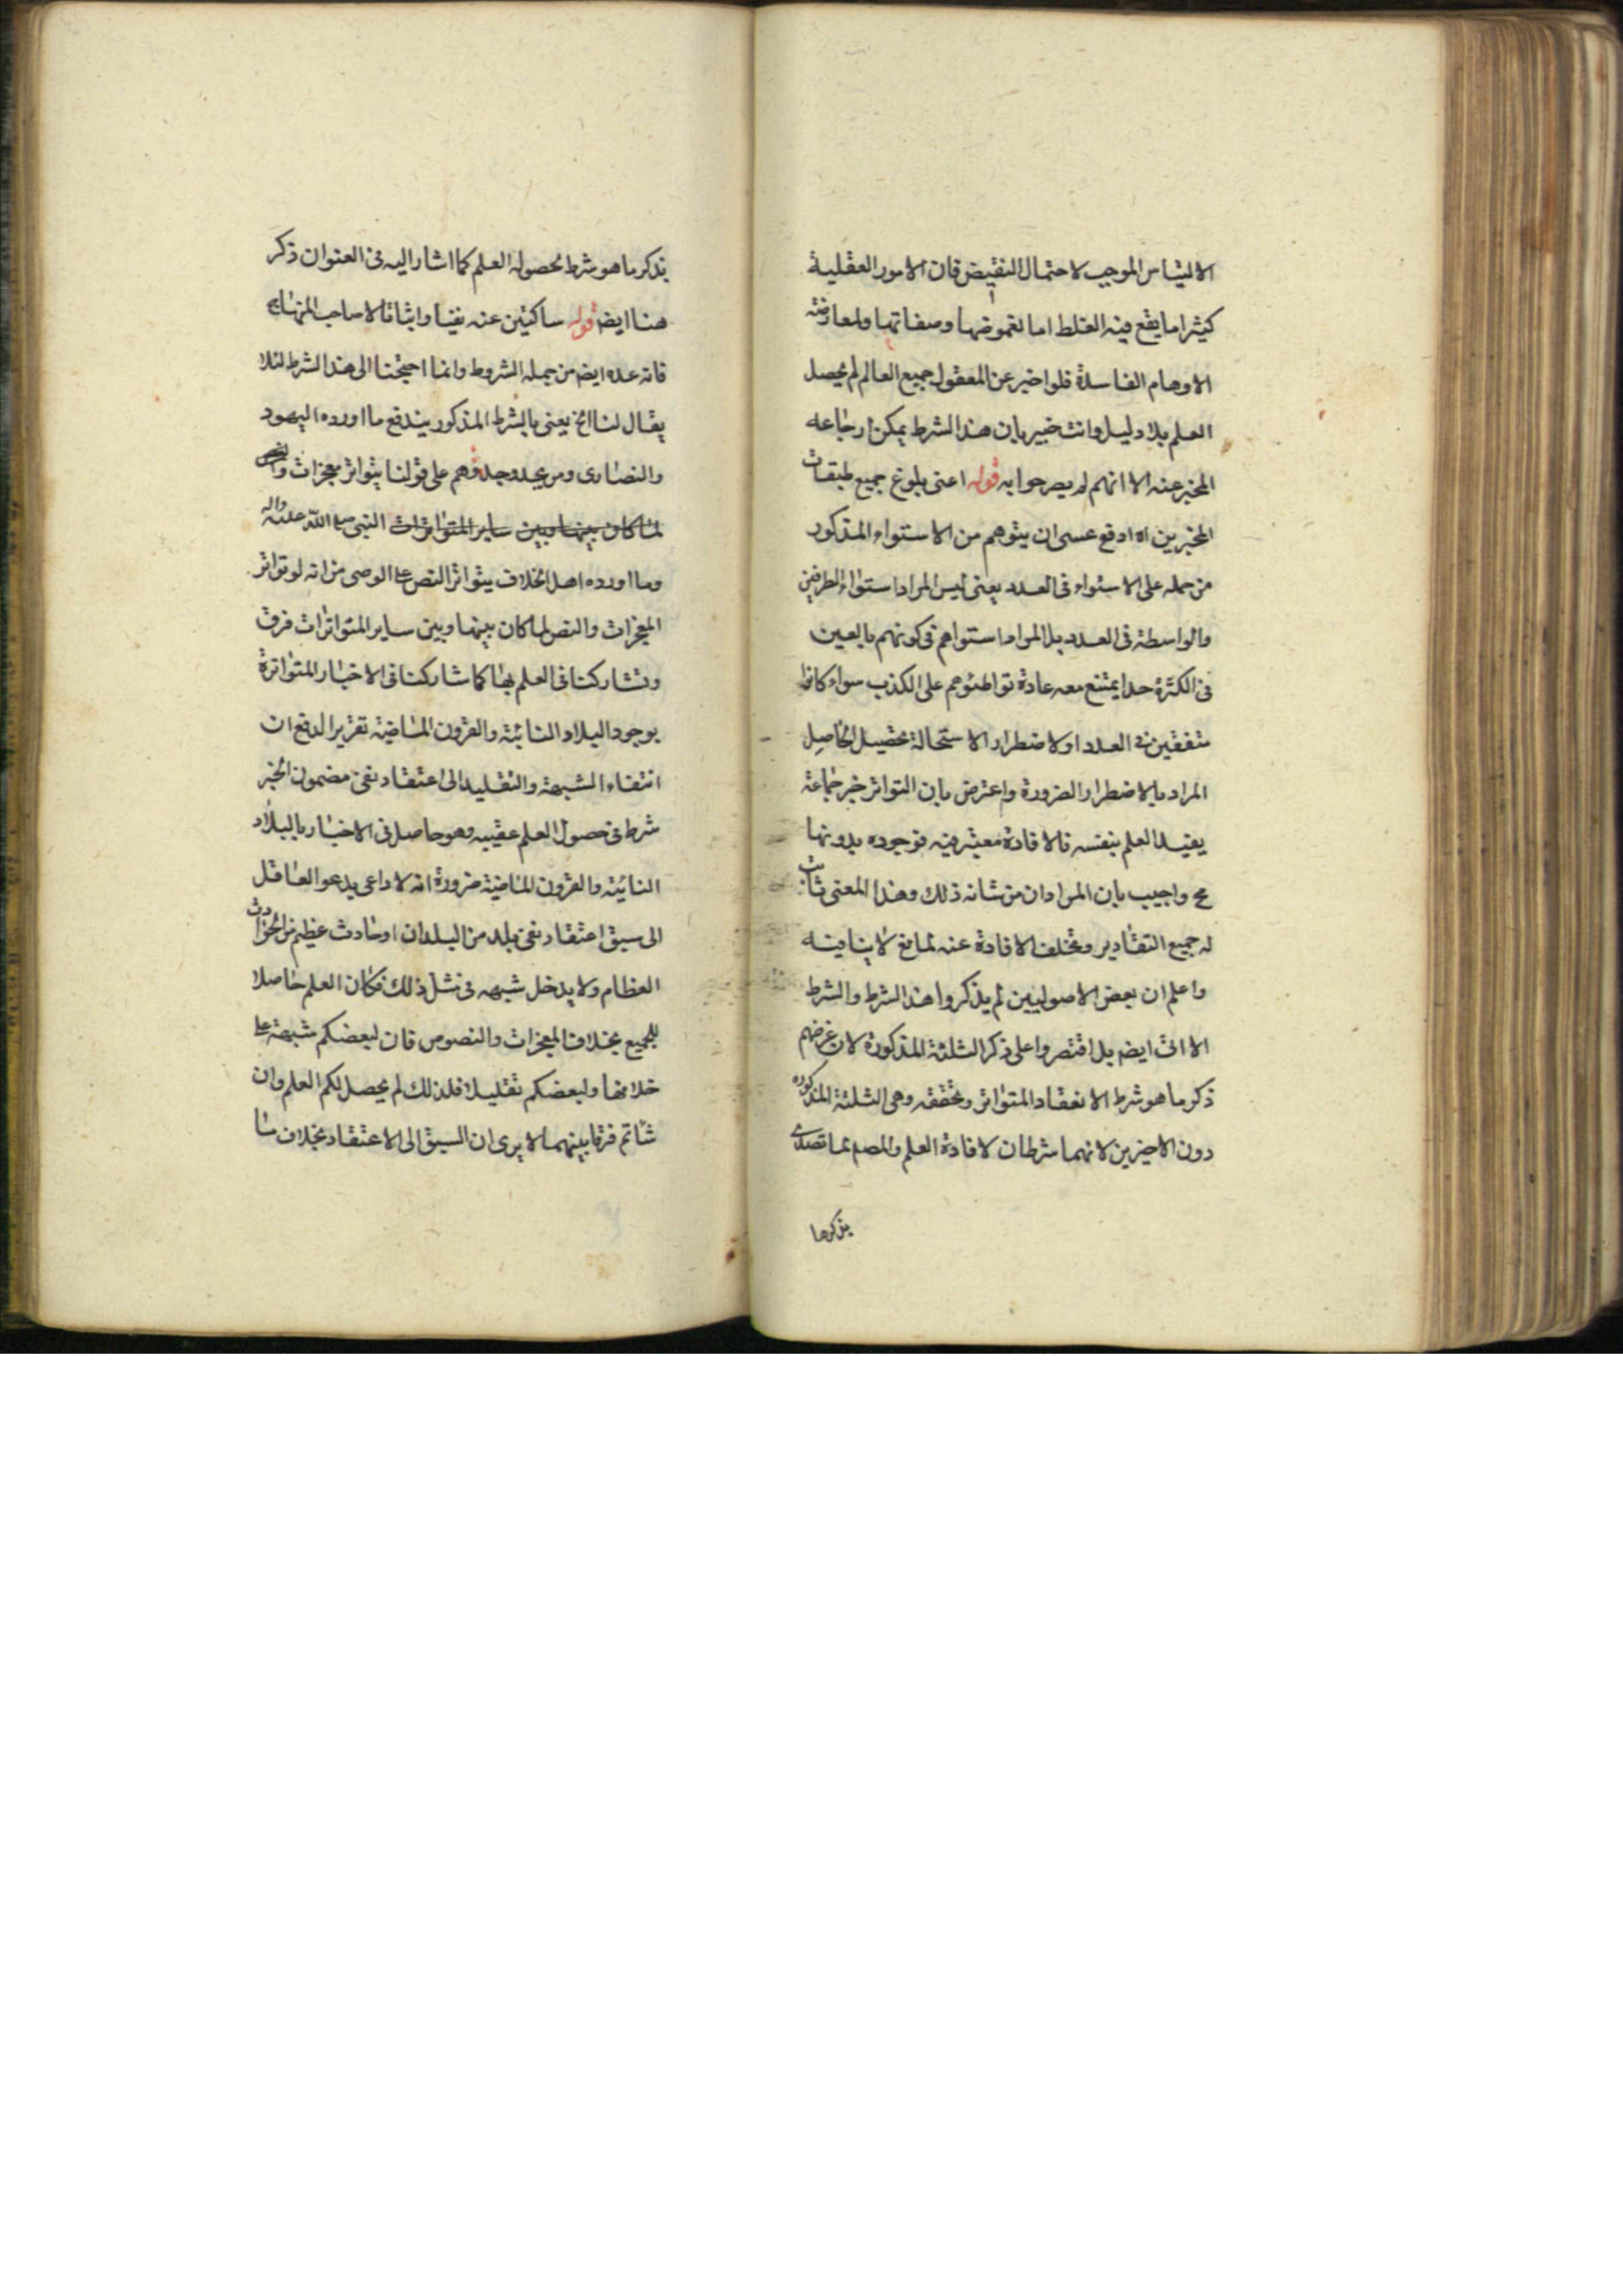 الالتباس الموجب لاحتمال النقيض فان الامور العقلية
كثيرا ما يقع فيه الغلط اما لغموضها وصفاتها ولمعارضة
الاوهام الفاسدة فلو اخبر عن المعقول جميع العالم لم يحصل
العلم بلا دليل وانت خبير بان هذا الشرط يمكن ارجاعه
المخبر عنه الا انهم لم يصرحوا به قوله اعنى بلوغ جميع طبقات
المخبرين اه ادفع عسى ان يتوهم من الاستواء المذكور
من حمله على الاستواء فى العدد يعنى ليس المراد استواء الطرفين
والواسطة فى العدد بل المراد استواهم فى كونهم بالغين
فى الكثرة حدا يمتنع معه عادة تواطئوهم على الكذب سواء كانوا
متفقين فى العدد او لا ضطرار الاستحالة تحصيل الحاصل
المراد بالاضطرار الضرورة واعترض بان التواتر خبر جماعة
يفيد العلم بنفسه فالافادة معتبر فيه فوجوده بدونها
مح واجيب بان المراد ان من شانه ذلك وهذا المعنى ثابت
له جميع التقادير وتخلف الافادة عنه لمانع لا ينافيه
واعلم ان بعض الاصوليين لم يذكروا هذا الشرط والشرط
الاتى ايضم بل اقتصروا على ذكر الثلثة المذكورة لان غرضهم
ذكر ما هو شرط الانعقاد المتواتر وتحققه وهى الثلثة المذكوره
دون الاخيرين لانهما شرطان لافادة العلم والمصم لما تصدى
يذكر ما
يذكر ما هو شرط لحصوله العلم كما اشار اليه فى العنوان ذكر
هنا ايضم قوله ساكتين عنه نفيا واثباتا لا صاحب المنهاج
فانه عده ايضم من جمله الشروط وانما احتجنا الى هذا الشرط لئلا
يقال لنا الخ يعنى بالشرط المذكور يندفع ما اورده اليهود
والنصارى ومن يحذو حذوهم على قولنا بتواتر معجزات والنص
لما كان بينها وبين ساير المتواترات النبى صلى الله عليه واله
وما اورده اهل الخلاف بتواتر النص على الوصى من انه لو تواتر
المعجزات والنص لما كان بينها وبين ساير المتواترات فرق
وتشاركنا فى العلم بها كما شاركنا فى الاخبار المتواترة
بوجود البلاد النائية والقرون الماضية تقرير الدفع ان
انتفاء الشبهة والتقليد الى اعتقاد نفى مضمون الخبر
شرط فى حصول العلم عقيبه وهو حاصل فى الاخبار بالبلاد
النائية والقرون الماضية ضرورة انه لا داعى يدعو العاقل
الى سبق اعتقاد نفى بلد من البلدان او حادث عظيم من الحوادث
العظام ولا يدخل شبهه فى مثل ذلك فكان العلم حاصلا
للجميع بخلاف المعجزات والنصوص فان لبعضكم شبهة على
خلافها ولبعضكم تقليدا فلذلك لم يحصل لكم العلم وان
شاتم فرقا بينهما لا يرى ان السبق الى الاعتقاد بخلاف ما